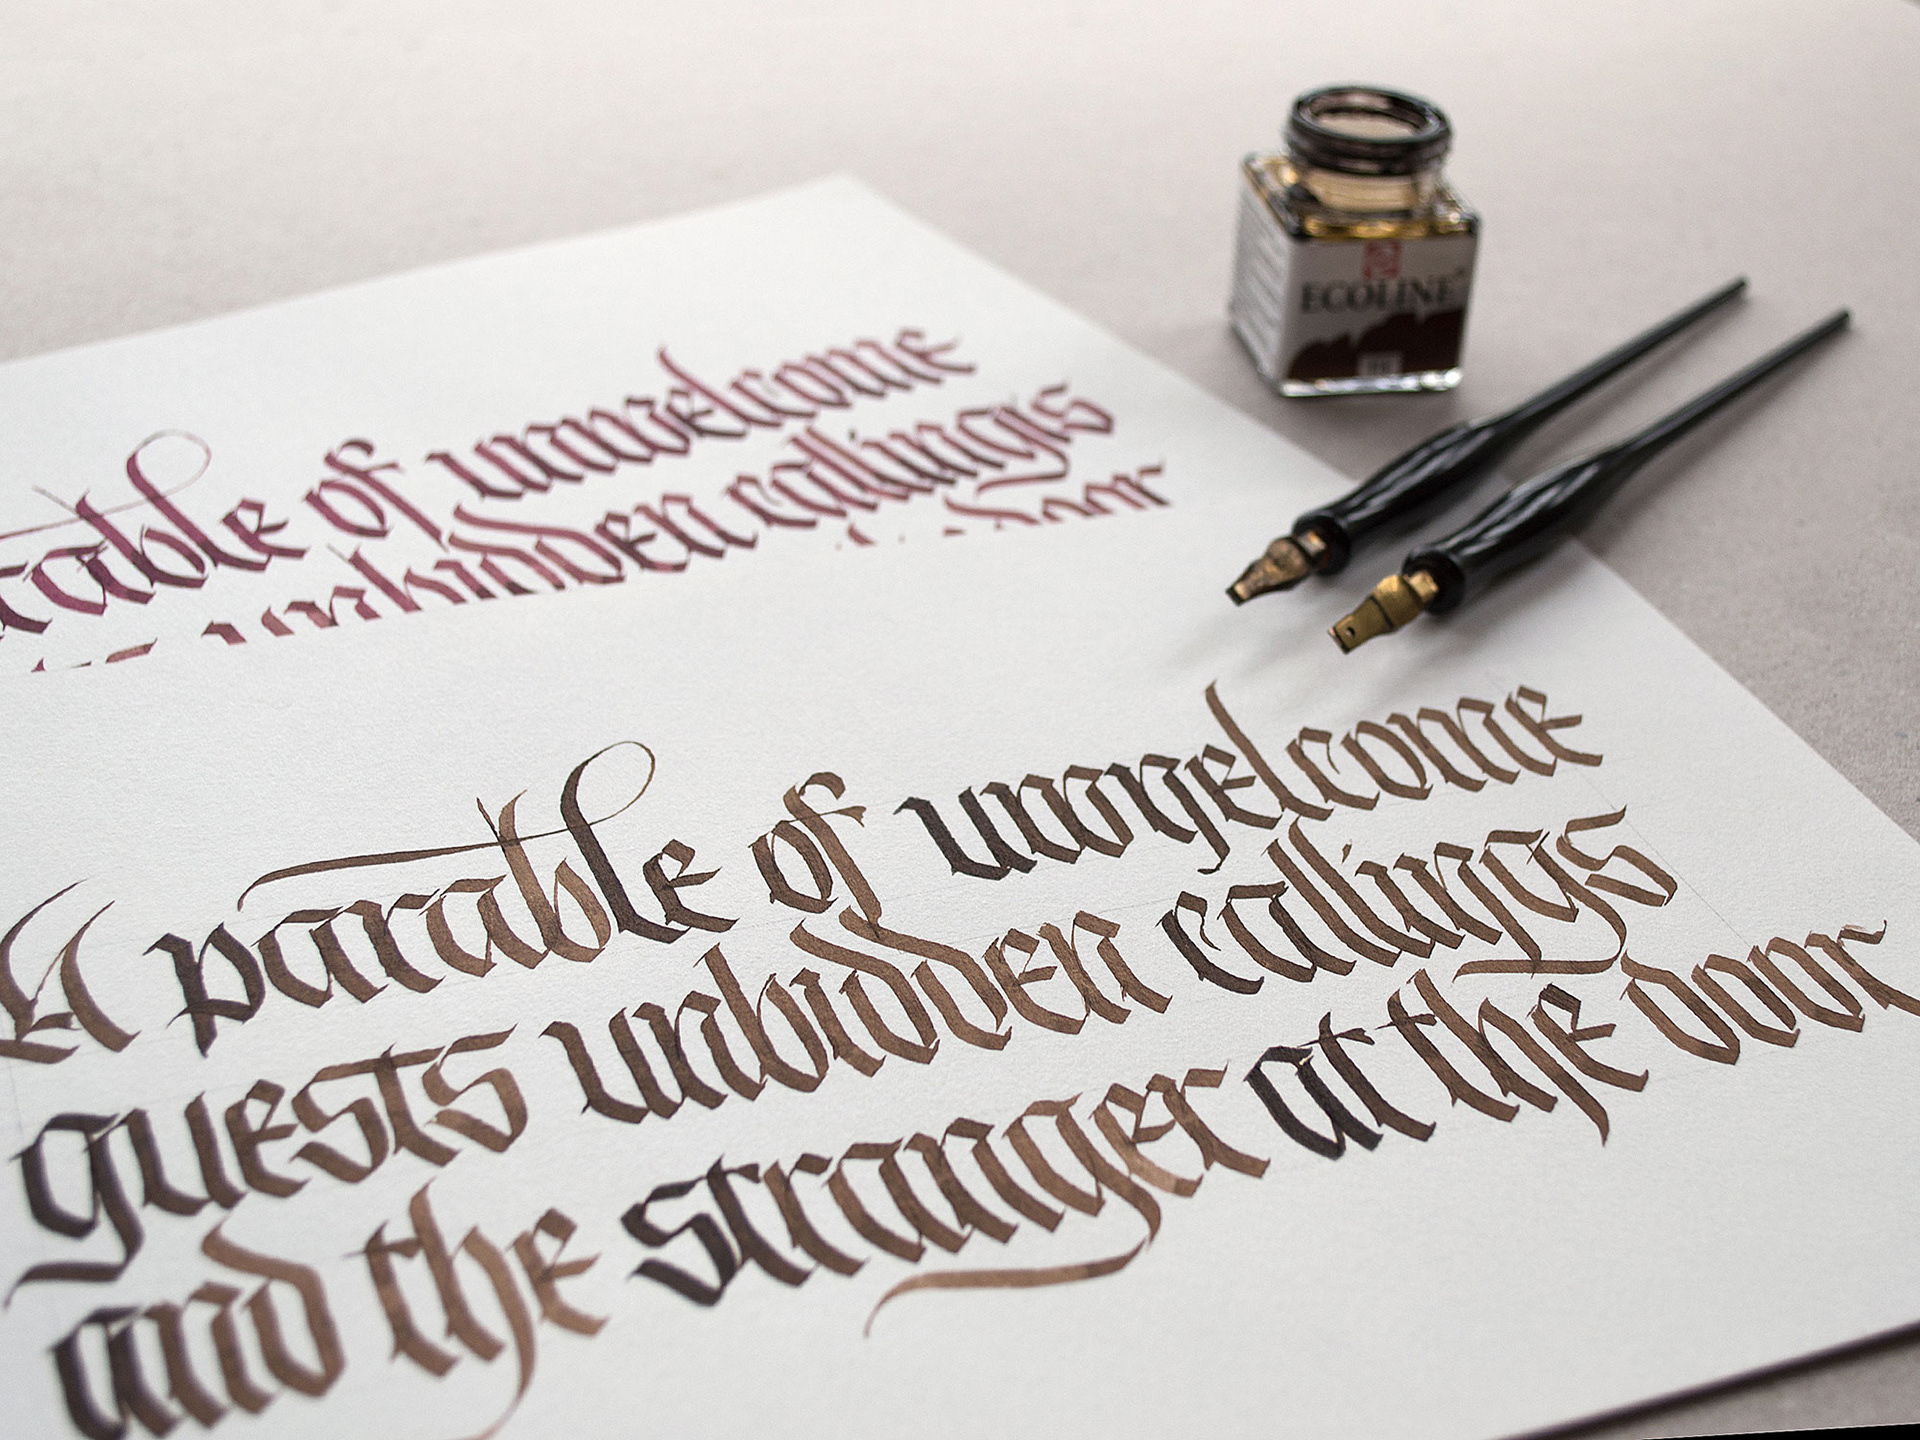 ECOLINE
rable of unwelcome
unbidden callings
door
A parable of unwelcome
guests unbidden callings
and the stranger at the door